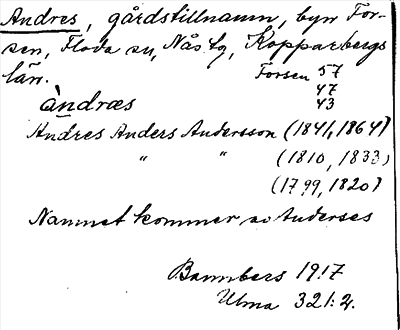 Andres, gårdstillnamn, byn For-
sen, Floda sn, Nås tg, Kopparbergs
län. Forsen 57
47
andræs 43
Andres Anders Andersson (1841, 1864)
" " (1810, 1833)
(1799, 1820)
Namnet kommer av Anderses
Bannbers 1917
Ulma 321:2.